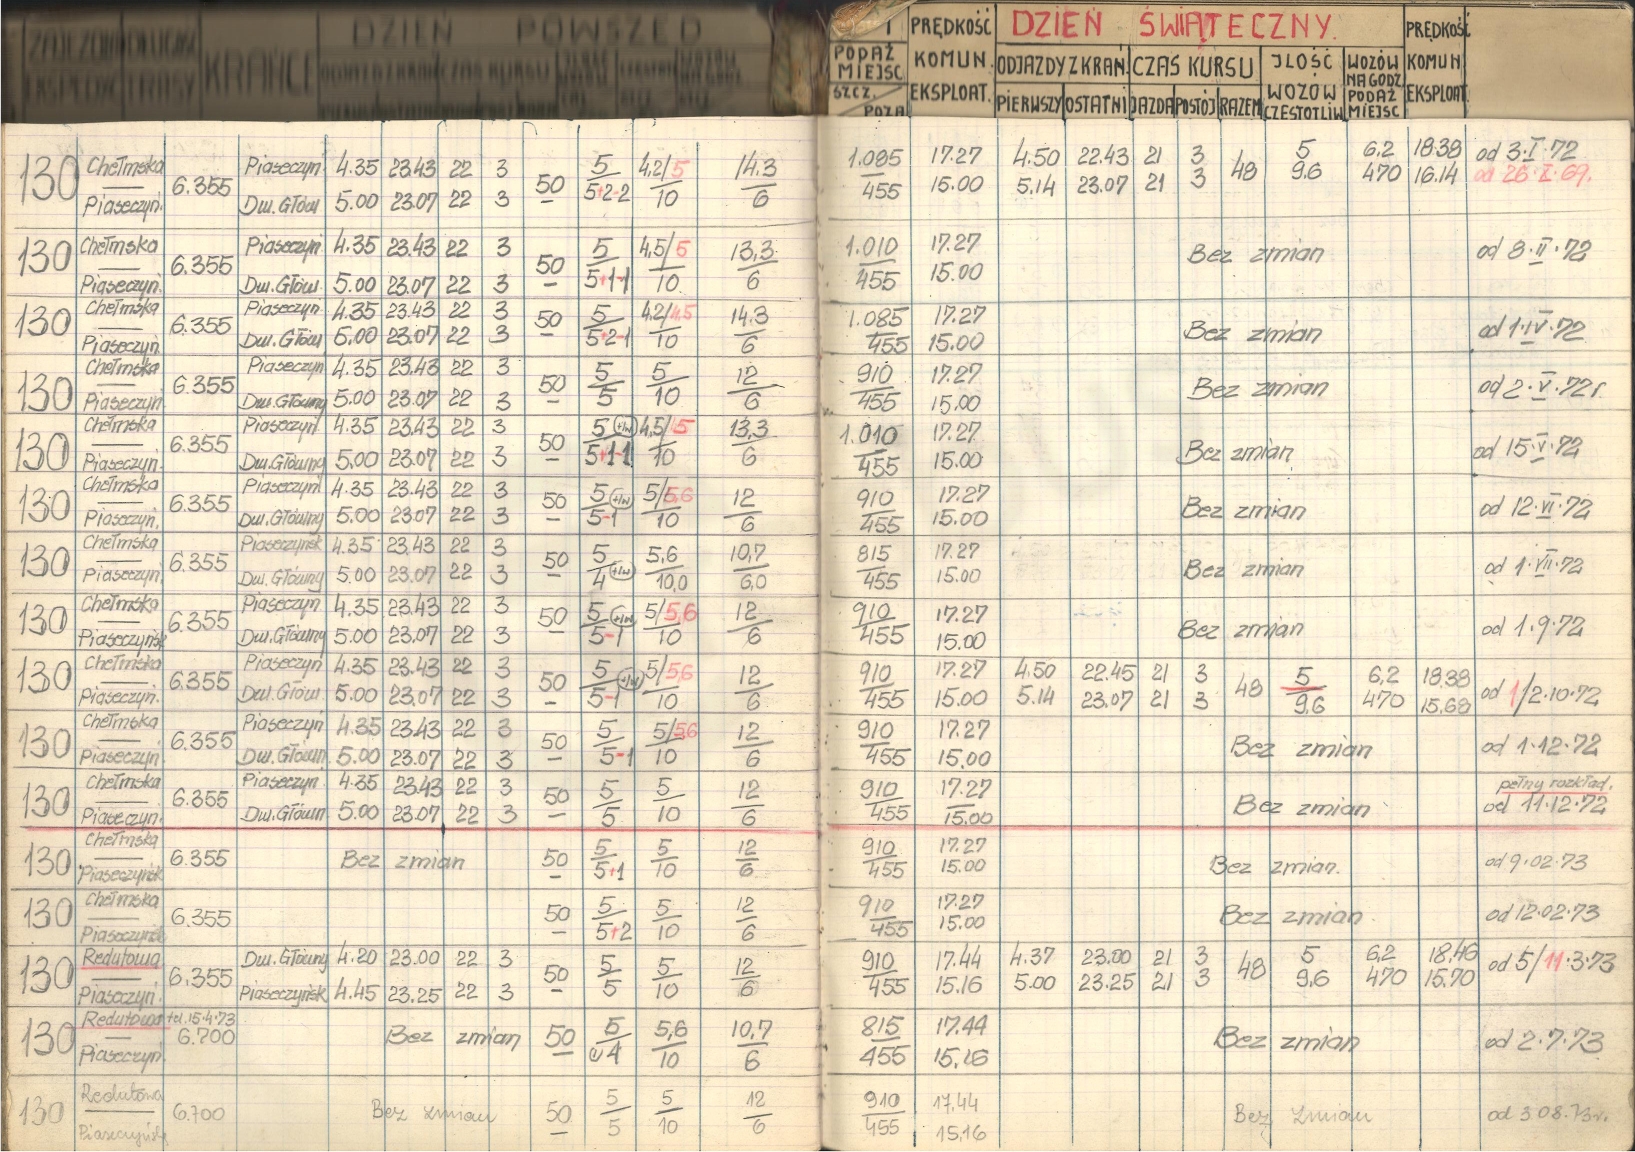 ZAJEZDNIA DŁUGOŚĆ KRAŃCE DZIEŃ POWSZED PRĘDKOŚĆ DZIEŃ ŚWIĄTECZNY. PRĘDKOŚĆ
EKSPEDYC TRASY PODAŻ MIEJSC KOMUN. ODJAZDY Z KRAŃ. CZAS KURSU JLOŚĆ WOZÓW WOZÓW NA GODZ. PODAŻ MIEJSC KOMUN
SZCZ. POZA EKSPLOAT. PIERWSZY OSTATNI JAZDA POSTÓJ RAZEM CZĘSTOTLIW EKSPLOAT.
130 Chełmska Piaseczyń. 6.355 Piaseczyń. 4.35 23.43 22 3 50 5 4,2/5 14.3 1.085 17.27 4.50 22.43 21 3 48 5 6,2 18.38 od 3.I.72
Dw. Głów 5.00 23.07 22 3 5+2-2 10 6 455 15.00 5.14 23.07 21 3 9.6 470 16.14 od 26.X.69.
130 Chełmska Piaseczyń. 6.355 Piaseczyń 4.35 23.43 22 3 50 5 4,5/5 13,3 1.010 17.27 Bez zmian od 8.II.72
Dw. Głów. 5.00 23.07 22 3 5+1-1 10 6 455 15.00
130 Chełmska Piaseczyń. 6.355 Piaseczyń 4.35 23.43 22 3 50 5 4.2/4,5 14.3 1.085 17.27 Bez zmian od 1.IV.72
Dw. Głów 5,00 23.07 22 3 5+2-1 10 6 455 15.00
130 Chełmska Piaseczyń 6.355 Piaseczyń 4.35 23.43 22 3 50 5 5 12 910 17.27 Bez zmian od 2.V.72r.
Dw. Główny 5.00 23.07 22 3 5 10 6 455 15.00
130 Chełmska Piaseczyń. 6.355 Piaseczyń 4.35 23.43 22 3 50 5 +1w 4,5/5 13,3 1.010 17.27 Bez zmian od 15.V.72
Dw. Główny 5,00 23.07 22 3 5+1-1 10 6 455 15.00
130 Chełmska Piaseczyń. 6.355 Piaseczyń 4.35 23.43 22 3 50 5 +1w 5/5,6 12 910 17.27 Bez zmian od 12.VI.72
Dw. Główny 5.00 23.07 22 3 5-1 10 6 455 15.00
130 Chełmska Piaseczyń. 6.355 Piaseczyńsk 4.35 23.43 22 3 50 5 5,6 10,7 815 17.27 Bez zmian od 1.VII.72
Dw. Główny 5.00 23.07 22 3 4 +1w 10,0 6,0 455 15.00
130 Chełmska Piaseczyńsk 6.355 Piaseczyn 4.35 23.43 22 3 50 5 +1w 5/5,6 12 910 17.27 Bez zmian od 1.9.72
Dw. Główny 5.00 23.07 22 3 5-1 10 6 455 15.00
130 Chełmska Piaseczyń. 6.355 Piaseczyń 4.35 23.43 22 3 50 5 +1w 5/5,6 12 910 17.27 4.50 22.45 21 3 48 5 6,2 18.38 od 1/2.10.72
Dw. Głów. 5.00 23.07 22 3 5-1 10 6 455 15.00 5.14 23.07 21 3 9.6 470 15.68
130 Chełmska Piaseczyń. 6.355 Piaseczyń 4.35 23.43 22 3 50 5 5/5,6 12 910 17.27 Bez zmian od 1.12.72
Dw. Główn. 5.00 23.07 22 3 5-1 10 6 455 15.00
130 Chełmska Piaseczyń. 6.355 Piaseczyn. 4.35 23.43 22 3 50 5 5 12 910 17.27 Bez zmian pełny rozkład.
Dw. Główn 5.00 23.07 22 3 5 10 6 455 15.00 od 11.12.72
130 Chełmska Piaseczyńsk 6.355 Bez zmian 50 5 5 12 910 17.27 Bez zmian. od 9.02.73
5+1 10 6 455 15.00
130 Chełmska Piaseczyńsk 6.355 50 5 5 12 910 17.27 Bez zmian od 12.02.73
5+2 10 6 455 15.00
130 Redutowa Piaseczyń. 6.355 Dw. Główny 4.20 23.00 22 3 50 5 5 12 910 17.44 4.37 23.00 21 3 48 5 6,2 18.46 od 5/11.3.73
Piaseczyńsk 4.45 23.25 22 3 5 10 6 455 15.16 5.00 23.25 21 3 9,6 470 15.70
130 Redutowa Piaseczyń. tel. 15.4.73
6.700 Bez zmian 50 5 5,6 10,7 815 17.44 Bez zmian od 2.7.73
4 10 6 455 15,16
130 Redutowa Piaseczyńsk 6.700 Bez zmian 50 5 5 12 910 17,44 Bez zmian od 3 08.73r.
5 10 6 455 15,16